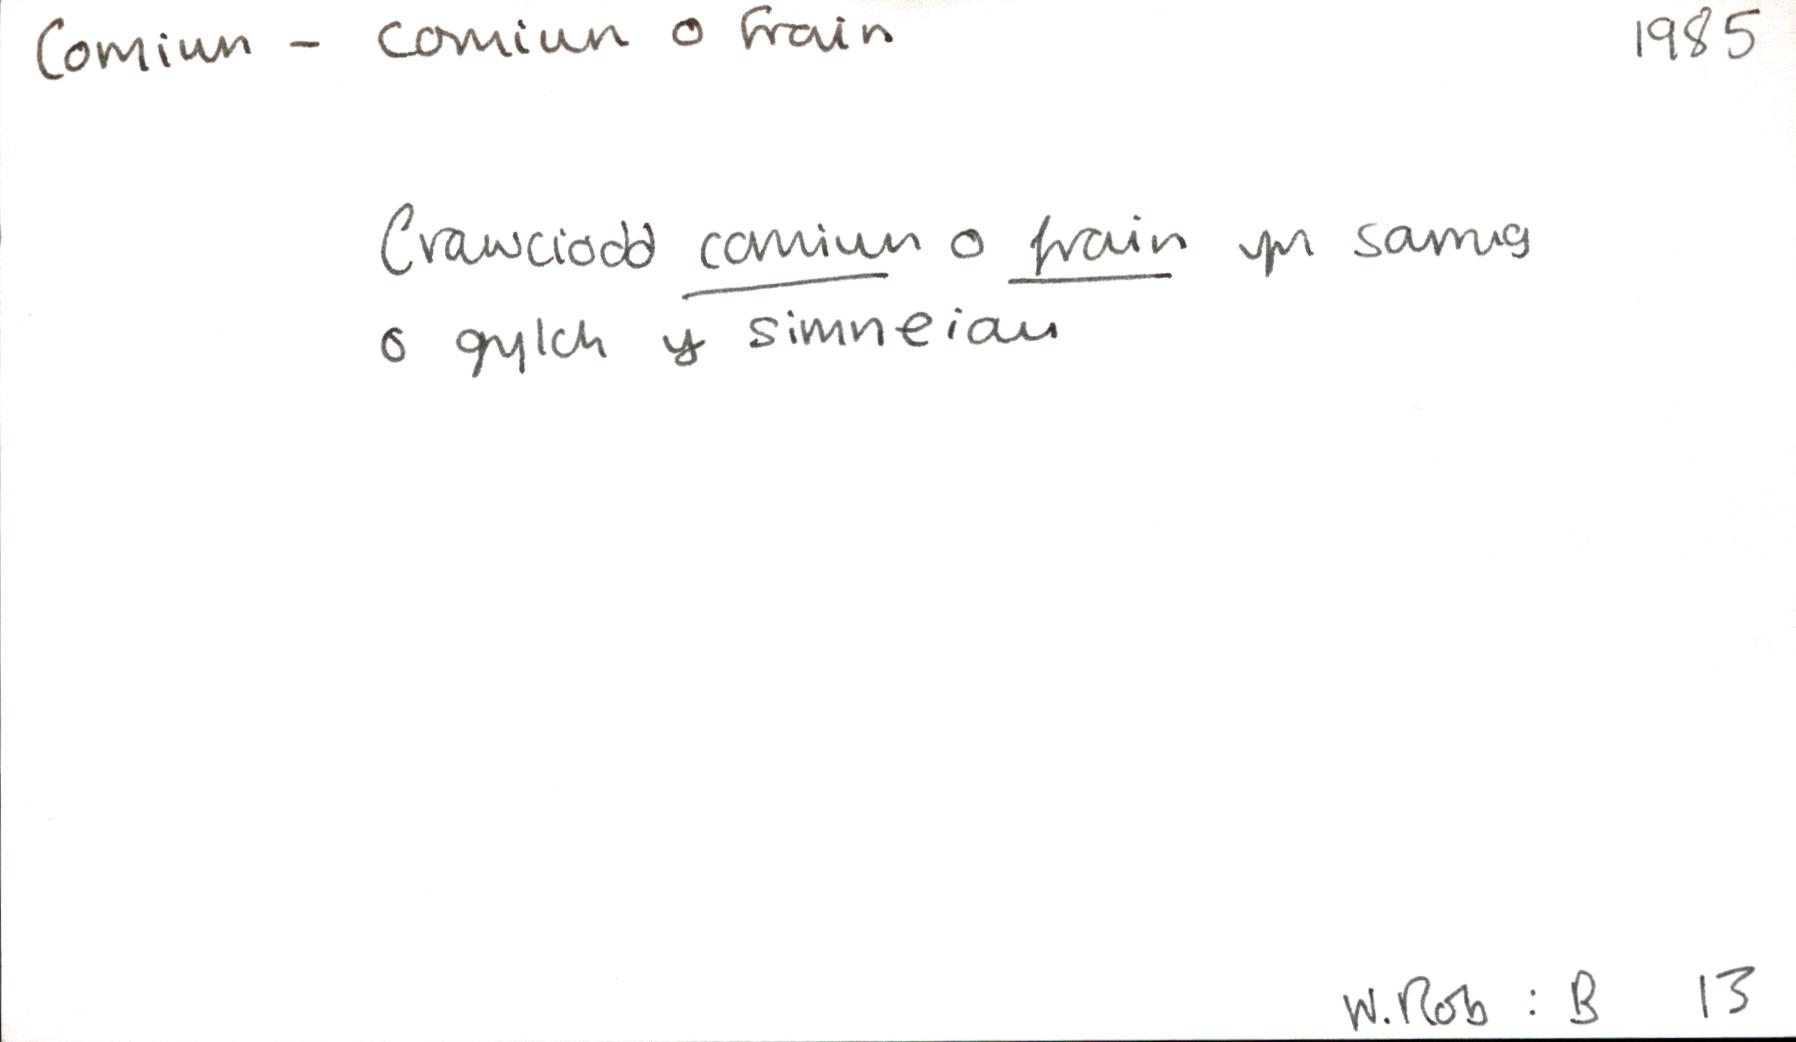 Comiun - comiun o frain 1985
Crawciodd comiun o frain yn sarrug
o gylch y simneiau
W. Rob : B 13